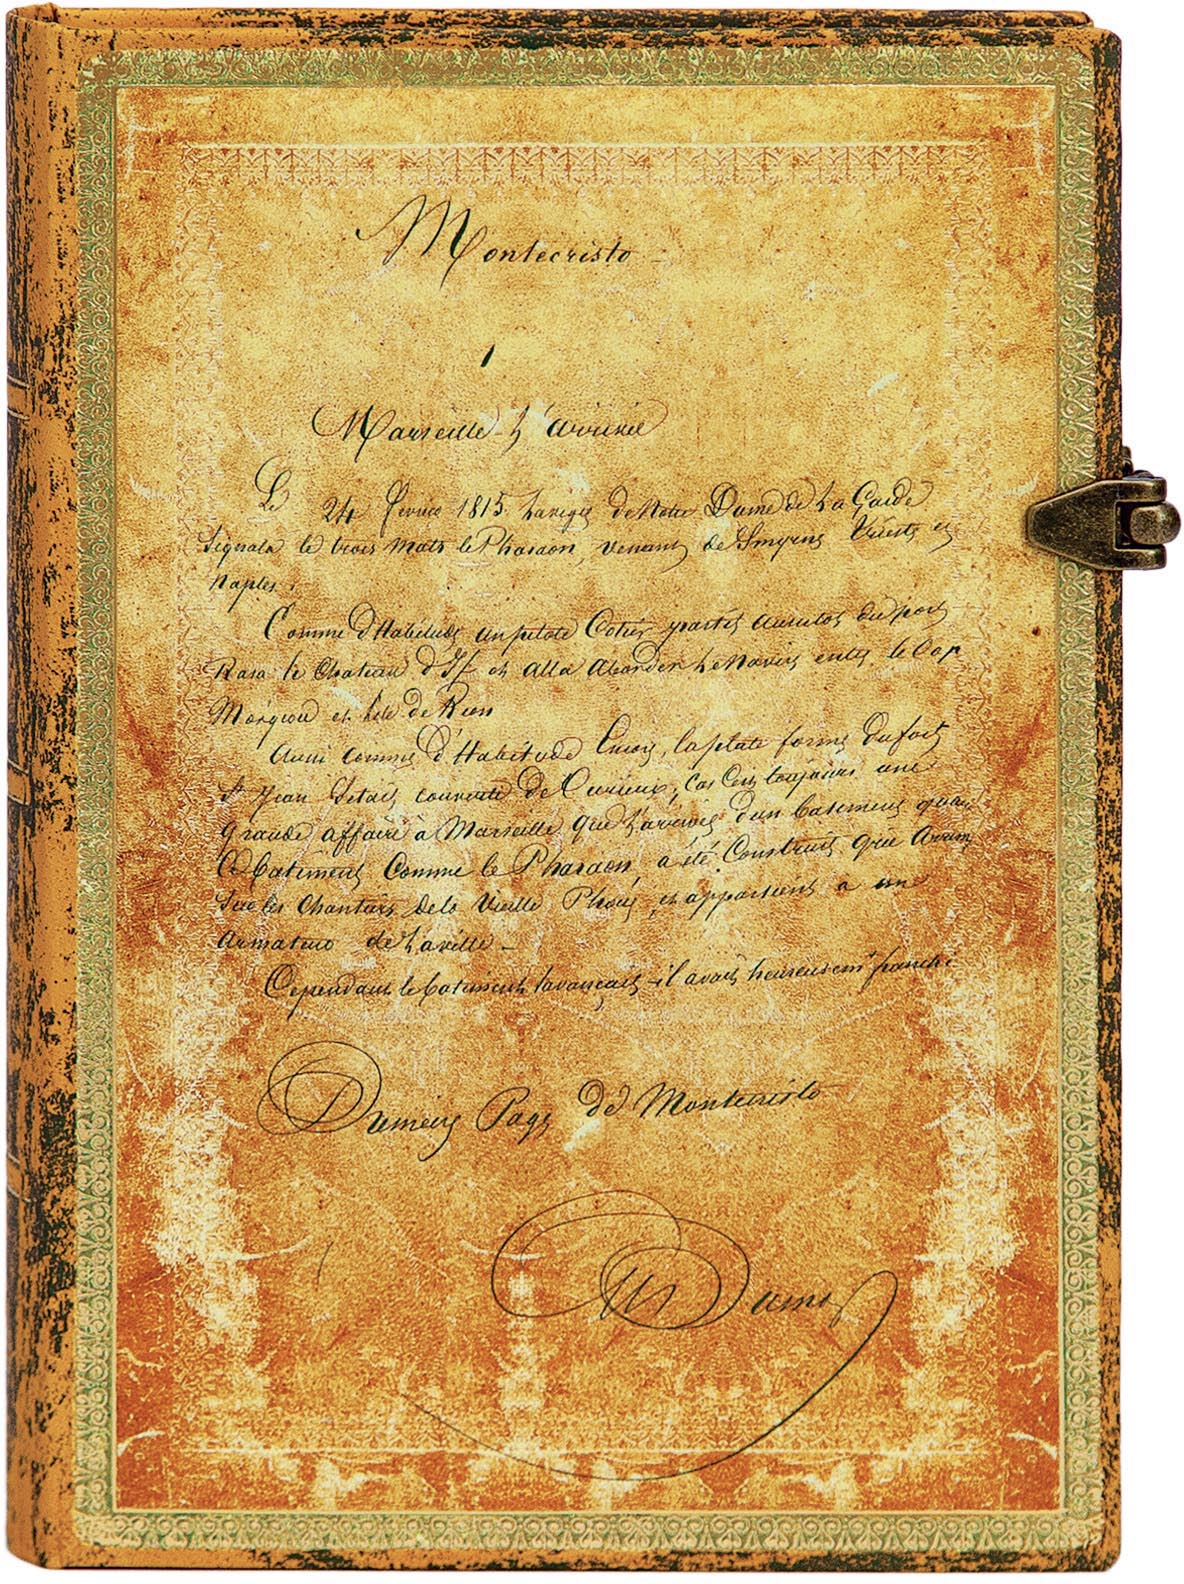 Montecristo -
1
Marseille - L'arrivée
Le 24 fevrier 1815. La vigie de Notre Dame de La Garde
Signala le trois mats le Pharaon, venant de Smyrne Trieste et
Naples.
Comme d'Habitude un pilote Cotier partit aussitot du port
Rasa le Chateau d'If et alla aborder Le Navire entre le Cap
Morgiou et l'ile de Rion
Aussi comme d'Habitude Encore, la plate forme du fort
St Jean s'etait couverte de Curieux, car C'est toujours une
grande affaire à Marseille que L'arrivée d'un batiment quand
Ce batiment Comme le Pharaon, a été Construit gréé Arrimé
Sur les Chantiers de la Vieille Phocée, et appartient a un
Armateur de La ville -
Cependant le batiment s'avançait - il avait heureusemt franchi
Premiere Page de Montecristo
Dumas